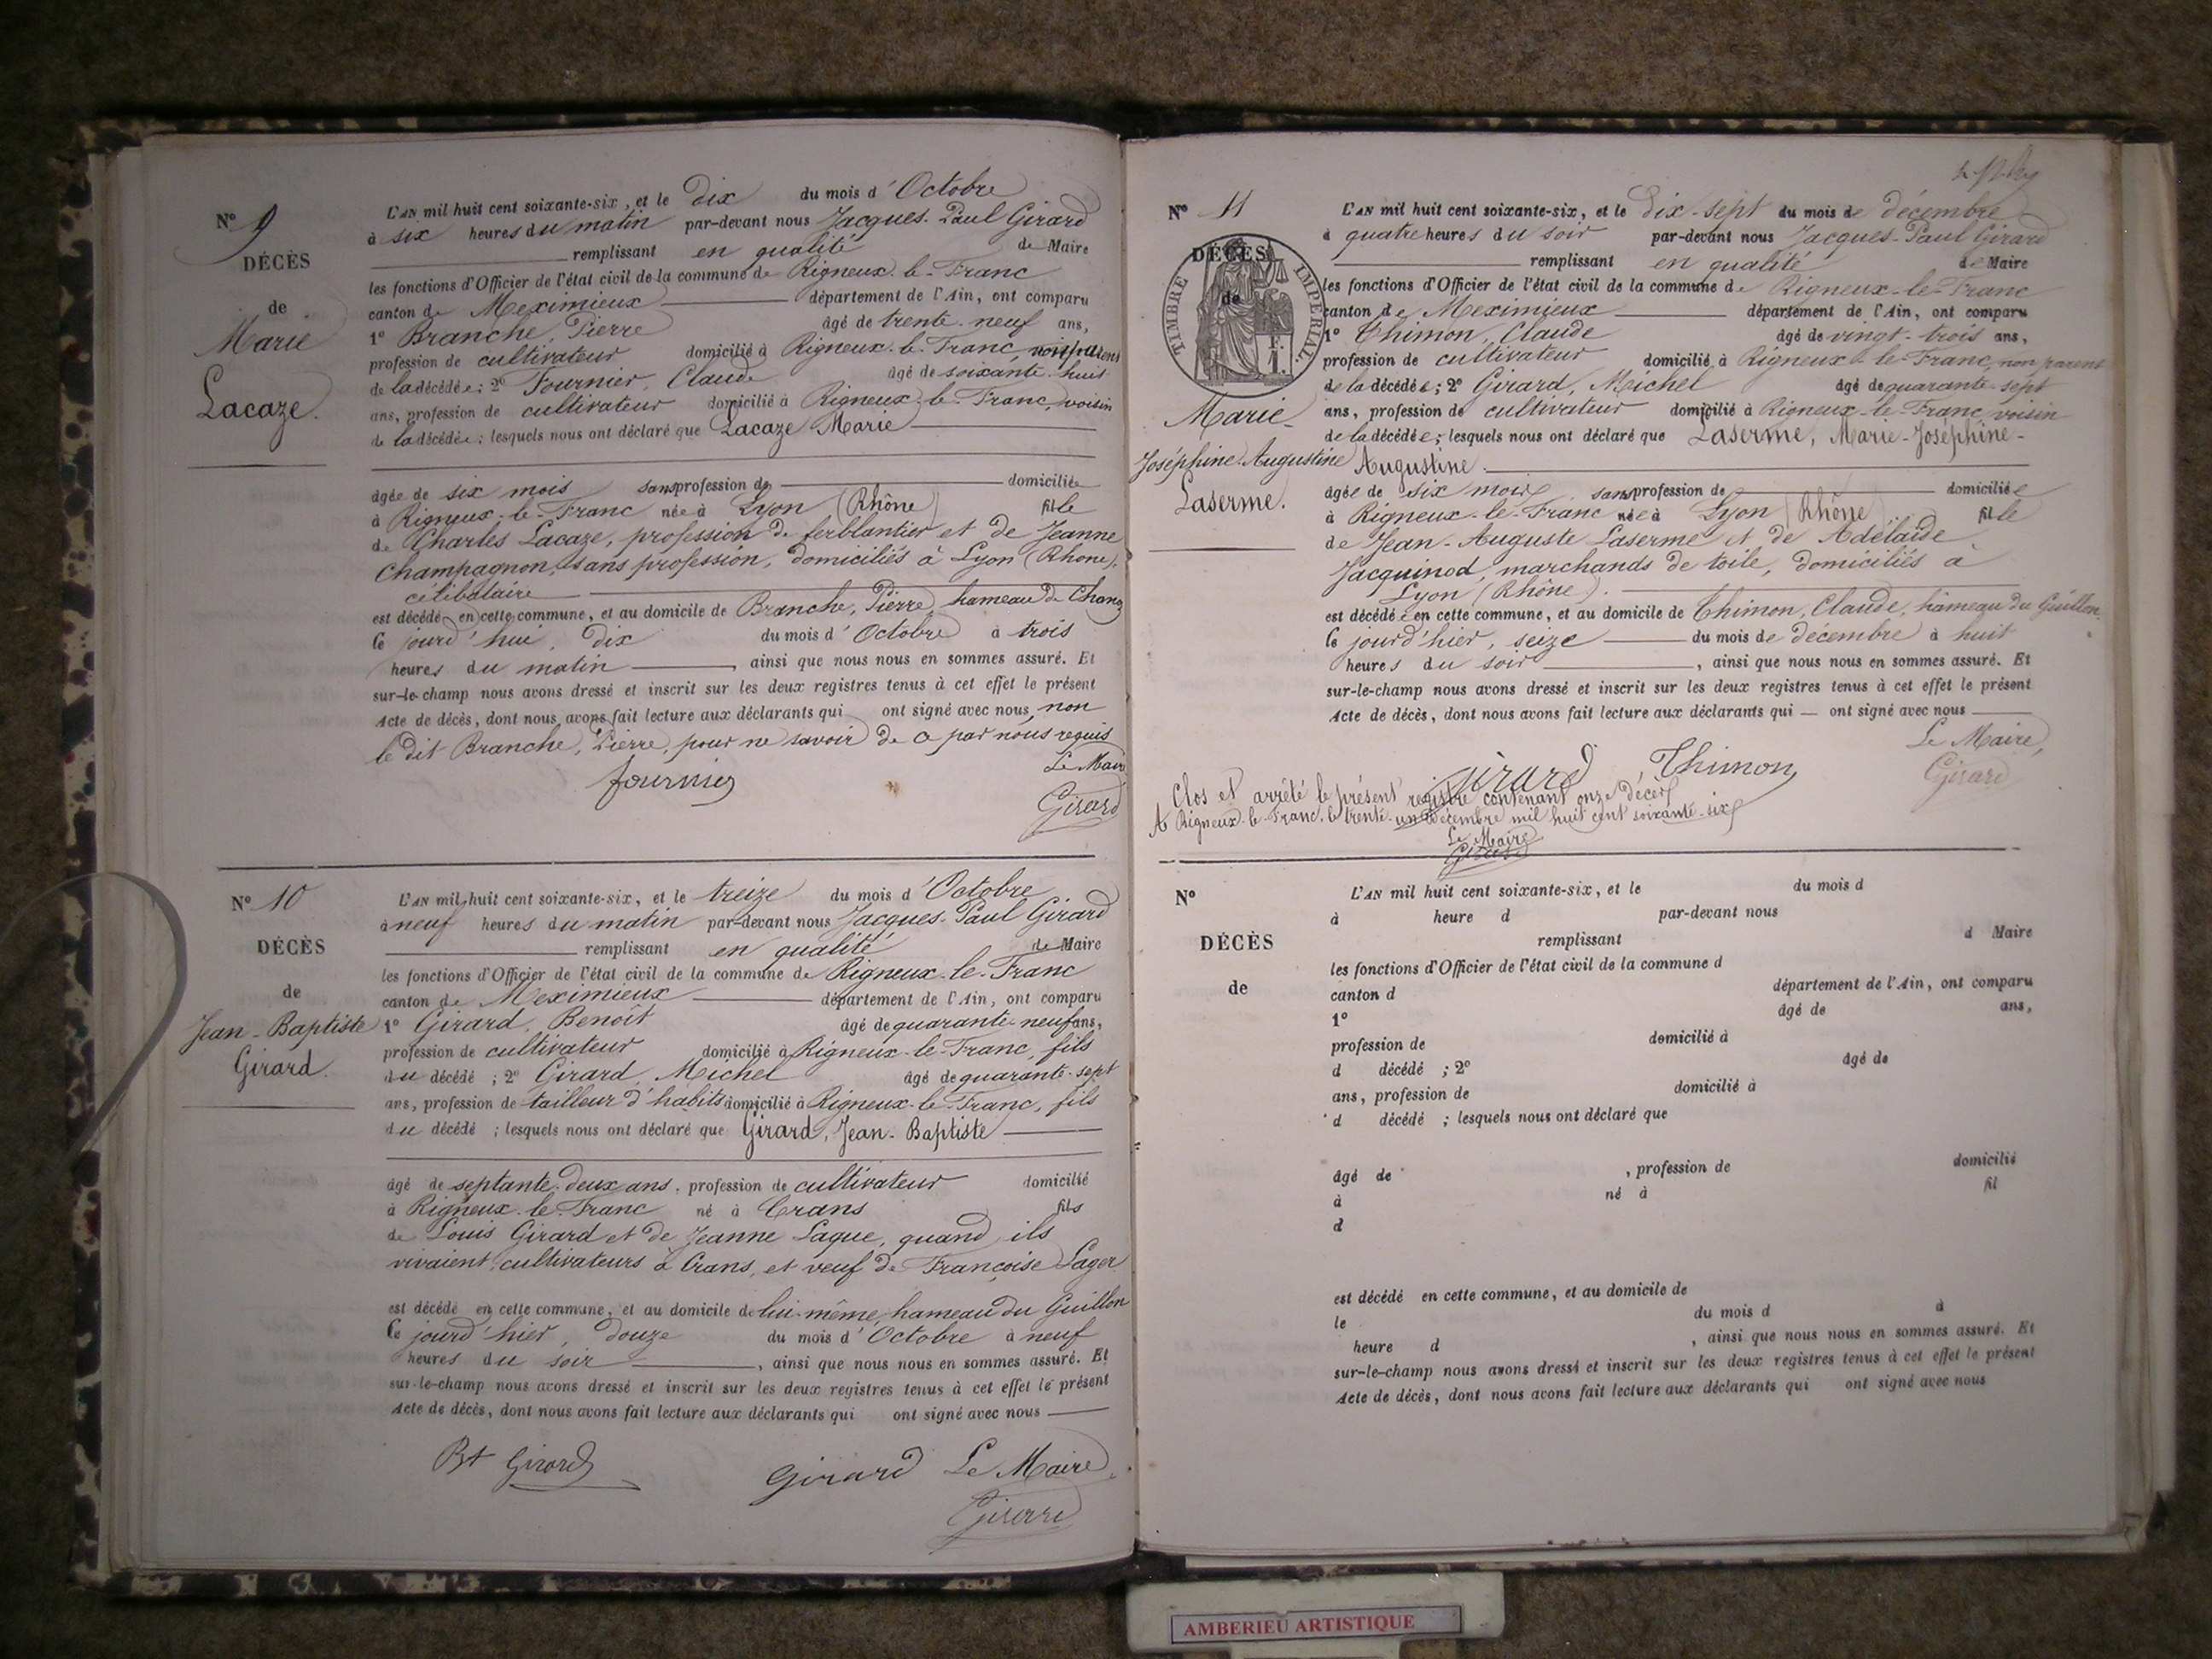 N° 9
DÉCÈS
de
Marie
Lacaze.
L'AN mil huit cent soixante-six, et le Dix du mois d'Octobre
à six heures du matin par-devant nous Jacques-Paul Girard
remplissant en qualité de Maire
les fonctions d'Officier de l'état civil de la commune de Rigneux-le-Franc
canton de Meximieux département de l'Ain, ont comparu
1° Branche, Pierre âgé de trente-neuf ans,
profession de cultivateur domicilié à Rigneux-le-Franc,
de la décédée; 2° Fournier, Claude âgé de soixante-huit
ans, profession de cultivateur domicilié à Rigneux-le-Franc, voisin
de la décédée; lesquels nous ont déclaré que Lacaze Marie
âgée de six mois sans profession de domiciliée
à Rigneux-le-Franc née à Lyon (Rhône) fille
de Charles Lacaze, profession de ferblantier et de Jeanne
Champagnon, sans profession, domiciliés à Lyon (Rhône),
célibataire
est décédé en cette commune, et au domicile de Branche, Pierre, hameau de Chanoz
le jourd'hui, dix du mois d'Octobre à trois
heures du matin, ainsi que nous nous en sommes assuré. Et
sur-le-champ nous avons dressé et inscrit sur les deux registres tenus à cet effet le présent
Acte de décès, dont nous avons fait lecture aux déclarants qui ont signé avec nous, non
le dit Branche, Pierre, pour ne savoir de ce par nous requis
Le Maire
fournier
Girard
N° 10
DÉCÈS
de
Jean-Baptiste
Girard.
L'AN mil huit cent soixante-six, et le treize du mois d'Octobre
à neuf heures du matin par-devant nous Jacques-Paul Girard
remplissant en qualité de Maire
les fonctions d'Officier de l'état civil de la commune de Rigneux-le-Franc
canton de Meximieux département de l'Ain, ont comparu
1° Girard, Benoît âgé de quarante-neuf ans,
profession de cultivateur domicilié à Rigneux-le-Franc, fils
du décédé; 2° Girard, Michel âgé de quarante-sept
ans, profession de tailleur d'habits domicilié à Rigneux-le-Franc, fils
du décédé; lesquels nous ont déclaré que Girard, Jean-Baptiste
âgé de septante-deux ans, profession de cultivateur domicilié
à Rigneux-le-Franc né à Crans fils
de Louis Girard et de Jeanne Laque, quand ils
vivaient, cultivateurs à Crans, et veuf de Françoise Lager
est décédé en cette commune, et au domicile de lui-même, hameau du Guillon
le jourd'hier, douze du mois d'Octobre à neuf
heures du soir, ainsi que nous nous en sommes assuré. Et
sur-le-champ nous avons dressé et inscrit sur les deux registres tenus à cet effet le présent
Acte de décès, dont nous avons fait lecture aux déclarants qui ont signé avec nous
Bt Girard Girard Le Maire
Girard
N° 11
DÉCÈS
de
TIMBRE IMPERIAL
Marie-
Joséphine-Augustine
Laserme.
L'AN mil huit cent soixante-six, et le dix-sept du mois de décembre
à quatre heures du soir par-devant nous Jacques-Paul Girard
remplissant en qualité de Maire
les fonctions d'Officier de l'état civil de la commune de Rigneux-le-Franc
canton de Meximieux département de l'Ain, ont comparu
1° Thimon, Claude âgé de vingt-trois ans,
profession de cultivateur domicilié à Rigneux-le-Franc, non parent
de la décédée; 2° Girard, Michel âgé de quarante-sept
ans, profession de cultivateur domicilié à Rigneux-le-Franc, voisin
de la décédée; lesquels nous ont déclaré que Laserme, Marie-Joséphine-
Augustine
âgée de six mois, sans profession de domiciliée
à Rigneux-le-Franc née à Lyon (Rhône) fille
de Jean-Auguste Laserme et de Adélaïde
Jacquinod, marchands de toile, domiciliés à
Lyon (Rhône).
est décédée en cette commune, et au domicile de Thimon, Claude, hameau du Guillon
le jourd'hier, seize du mois de décembre à huit
heures du soir, ainsi que nous nous en sommes assuré. Et
sur-le-champ nous avons dressé et inscrit sur les deux registres tenus à cet effet le présent
Acte de décès, dont nous avons fait lecture aux déclarants qui — ont signé avec nous
Le Maire,
girard Thimon Girard
Clos et arrêté le présent registre contenant onze décès
A Rigneux-le-Franc, le trente-un décembre mil huit cent soixante-six
Le Maire
Girard
N°
DÉCÈS
de
L'AN mil huit cent soixante-six, et le du mois d
à heure d par-devant nous
remplissant d Maire
les fonctions d'Officier de l'état civil de la commune d
canton d département de l'Ain, ont comparu
1° âgé de ans,
profession de domicilié à
d décédé ; 2° âgé de
ans, profession de domicilié à
d décédé ; lesquels nous ont déclaré que
âgé de , profession de domicilié
à né à fil
d
est décédé en cette commune, et au domicile de
le du mois d à
heure d , ainsi que nous nous en sommes assuré. Et
sur-le-champ nous avons dressé et inscrit sur les deux registres tenus à cet effet le présent
Acte de décès, dont nous avons fait lecture aux déclarants qui ont signé avec nous
AMBERIEU ARTISTIQUE